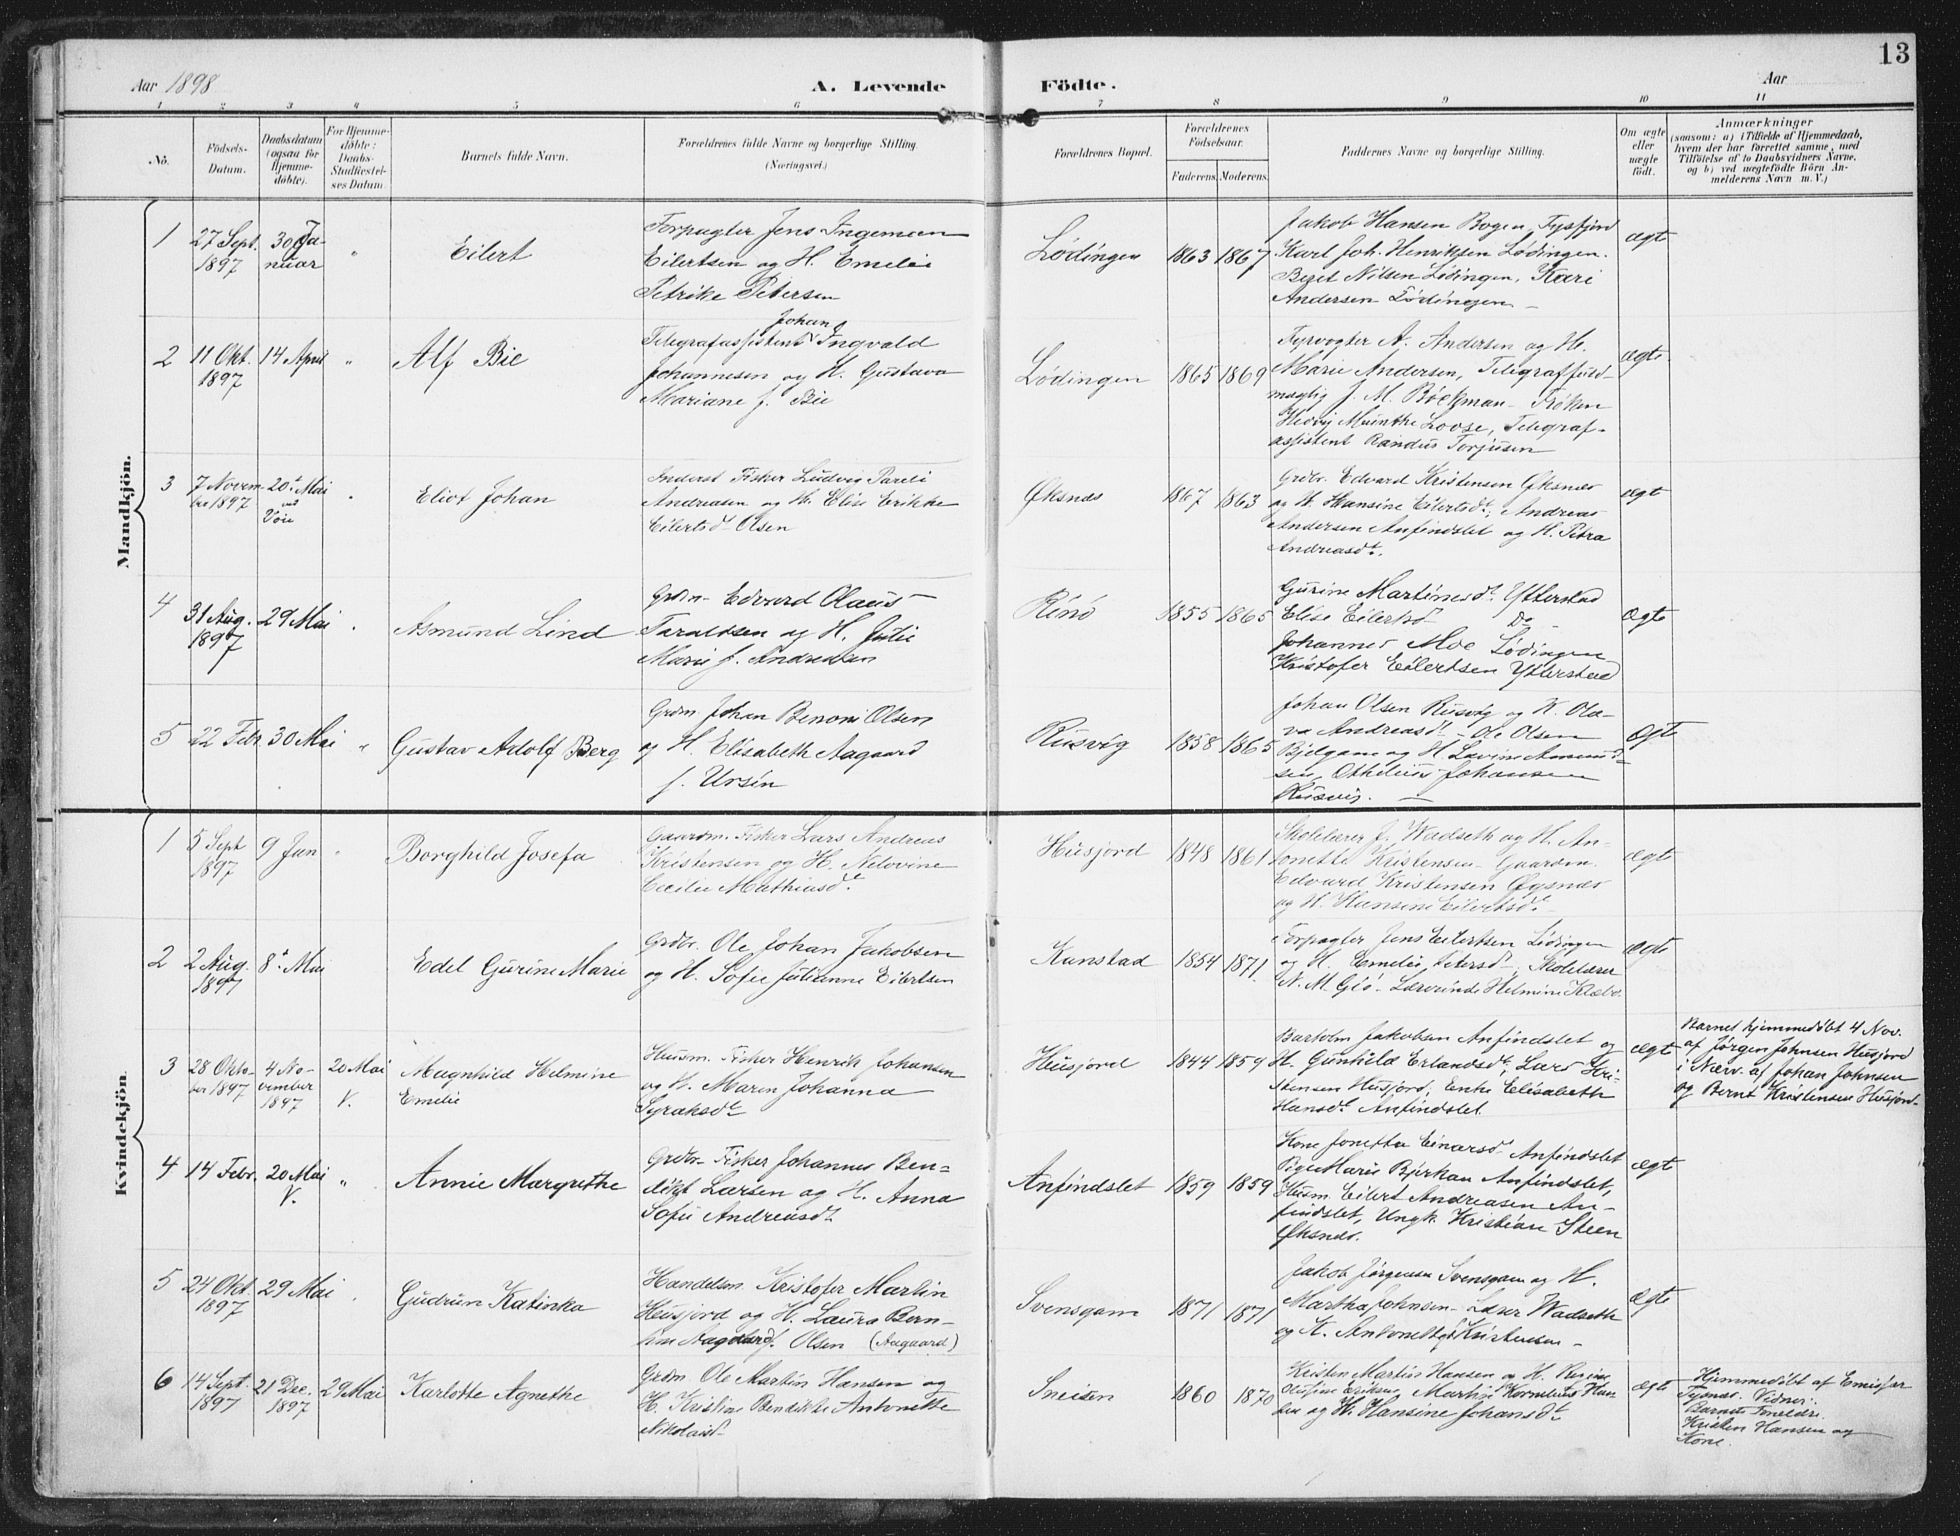 13
Aar 1898
A. Levende
Födte.
Aar
1 2 3 4 5 6 7 8 9 10 11
No.
Födsels-
Datum.
Daabsdatum
(ogsaa for
Hjemme-
døbte).
For Hjemme-
døbte:
Daabs-
Stadfæstel-
ses Datum
Barnets fulde Navn.
Forældrenes fulde Navne og borgerlige Stilling.
(Næringsvei.)
Forældrenes Bopæl.
Forældrenes
Födselsaar.
Faderens. Moderens.
Faddernes Navne og borgerlige Stilling.
Om ægte
eller
uægte
født.
Anmærkninger
(saasom: a) i Tilfælde af Hjemmedaab,
hvem der har forrettet samme, med
Tilföielse af to Daabsvidners Navne,
og b) ved uægtefödte Börn An-
melderens Navn m. V.)
Mandkjön.
1
27 Sept.
1897
30 Ja-
nuar
"
Eilert
Forpagter Jens Ingeman
Eilertsen og H. Emelie
Petrike Petersen
Lødingen
1863
1867
Jakob Hansen Bogen, Tysfjord
Karl Joh. Henriksen Lødingen.
Beret Nilsen Lødingen, Kari
Andersen Lødingen
ægte
2
11 Okt.
1897
14 April
"
Alf Bie
Johan
Telegrafassistent Ingvald
Johannesen og H. Gustava
Mariane f. Bie
Lødingen
1865
1869
Fyrvogter A. Andersen og H.
Marie Andersen, Telegraffuld-
mægtig J. M. Böckman - Frøken
Hedvig Munthe Loose, Telegraf-
assistent Randus Torjusen
ægte
3
7 Novem-
ber 1897
20de Mai
ved
Vøie
"
Eliot Johan
Inderst Fisker Ludvig Pareli
Andreasen og H. Elise Erikke
Eilertsd Olsen
Øksnes
1867
1863
Grdbr. Edvard Kristensen Øksnes
og H. Hansine Eilertsdt., Andreas
Andersen Anfindslet og H. Petra
Andreasdt.
ægte
4
31 Aug.
1897
29 Mai
"
Asmund Lind
Grdbr. Edvard Olaus
Taraldsen og H. Julie
Marie f. Andreasen
Rinö
1855
1865
Gurine Martinesdt. Ytterstad
Elise Eilertsd Do
Johannes Moe Lødingen
Kristofer Eilertsen Ytterstad
ægte
5
22 Febr.
30 Mai
"
Gustav Adolf Berg
Grdm. Johan Benoni Olsen
og H. Elisabeth Aagaard
f. Ursin
Rusvig
1858
1865
Johan Olsen Rusvig og H. Ola-
va Andreasdt - Ole Olsen
Bjelgam og H. Lavine Amund-
sen, Othelius Johansen
Rusvig.
ægte
Kvindekjön.
1
5 Sept
1897
9 Jan
"
Borghild Josefa
Gaardm. Fisker Lars Andreas
Kristensen og H. Nelovine
Cecilie Mathiasdt.
Husjord
1848
1861
Skolelærer J. Wadseth og H. An-
tonette Kristensen - Gaardm.
Edvard Kristensen Øgsnes
og H. Hansine Eilertsdt
ægte
2
2 Aug.
1897
8de Mai
Edel Gurine Marie
Grdbr. Ole Johan Jakobsen
og H. Sofie Julianne Eilertsen
Kanstad
1854
1871.
Forpagter Jens Eilertsen Lødingen
og H. Emelie Petersdt., Skolelærer
N. M. Giö. Lærerinde Helmine Klæbo.
ægte
3
28 Okto-
ber 1897
4 No-
vember
1897
20 Mai
V.
Magnhild Helmine
Emelie
Husm. Fisker Henrik Johansen
og H. Maren Johanna
Syraksdt
Husjord
1844
1859
Bartolm Jakobsen Anfindslet og
H. Gunhild Erlandsdt, Lars Kri-
stensen Husjord, Enke Elisabeth
Hansdt. Anfindslet
ægte
Barnet hjemmedöbt 4 Nov.
af Jørgen Johnsen Husjord
i Nærv. af Johan Johnsen
og Bernt Kristensen Husjord
4
14 Febr.
20 Mai
V.
"
Annie Margrethe
Grdbr. Fisker Johannes Ben-
dikt Larsen og H. Anna
Sofie Andreasdt
Anfindslet
1859
1859
Kone Jonetta Einarsdt Anfindslet
Pige Marie Bjerkan Anfindslet,
Husm. Eilert Andreasen An-
findslet, Ungk. Kristian Steen
Øksnes.
ægte
5
24 Okt.
1897
29 Mai
"
Gudrun Katinka
Handelsm. Kristofer Martin
Husjord og H. Laura Bern-
tine Aagaard f. Olsen (Aagaard)
Svensgam
1871
1871
Jakob Jörgensen Svensgam og H.
Martha Johnsen - Lærer Wadseth
og H. Antonette Kristensen -
ægte
6
14 Sept.
1897
21 Dec.
1897
29 Mai
Karlotte Agnethe
Grdm. Ole Martin Hansen og
H. Kristine Bendikte Antonette
Nikolaisdt
Sneisen
1860
1870
Kristen Martin Hansen og H. Regine
Olufine Eriksen, Martin Kornelius Han-
sen og H. Hansine Johansdt
ægte
Hjemmedöbt af Emissær
Tysnes. Vidner:
Barnets Forældre.
Kristen Hansen og
Kone.